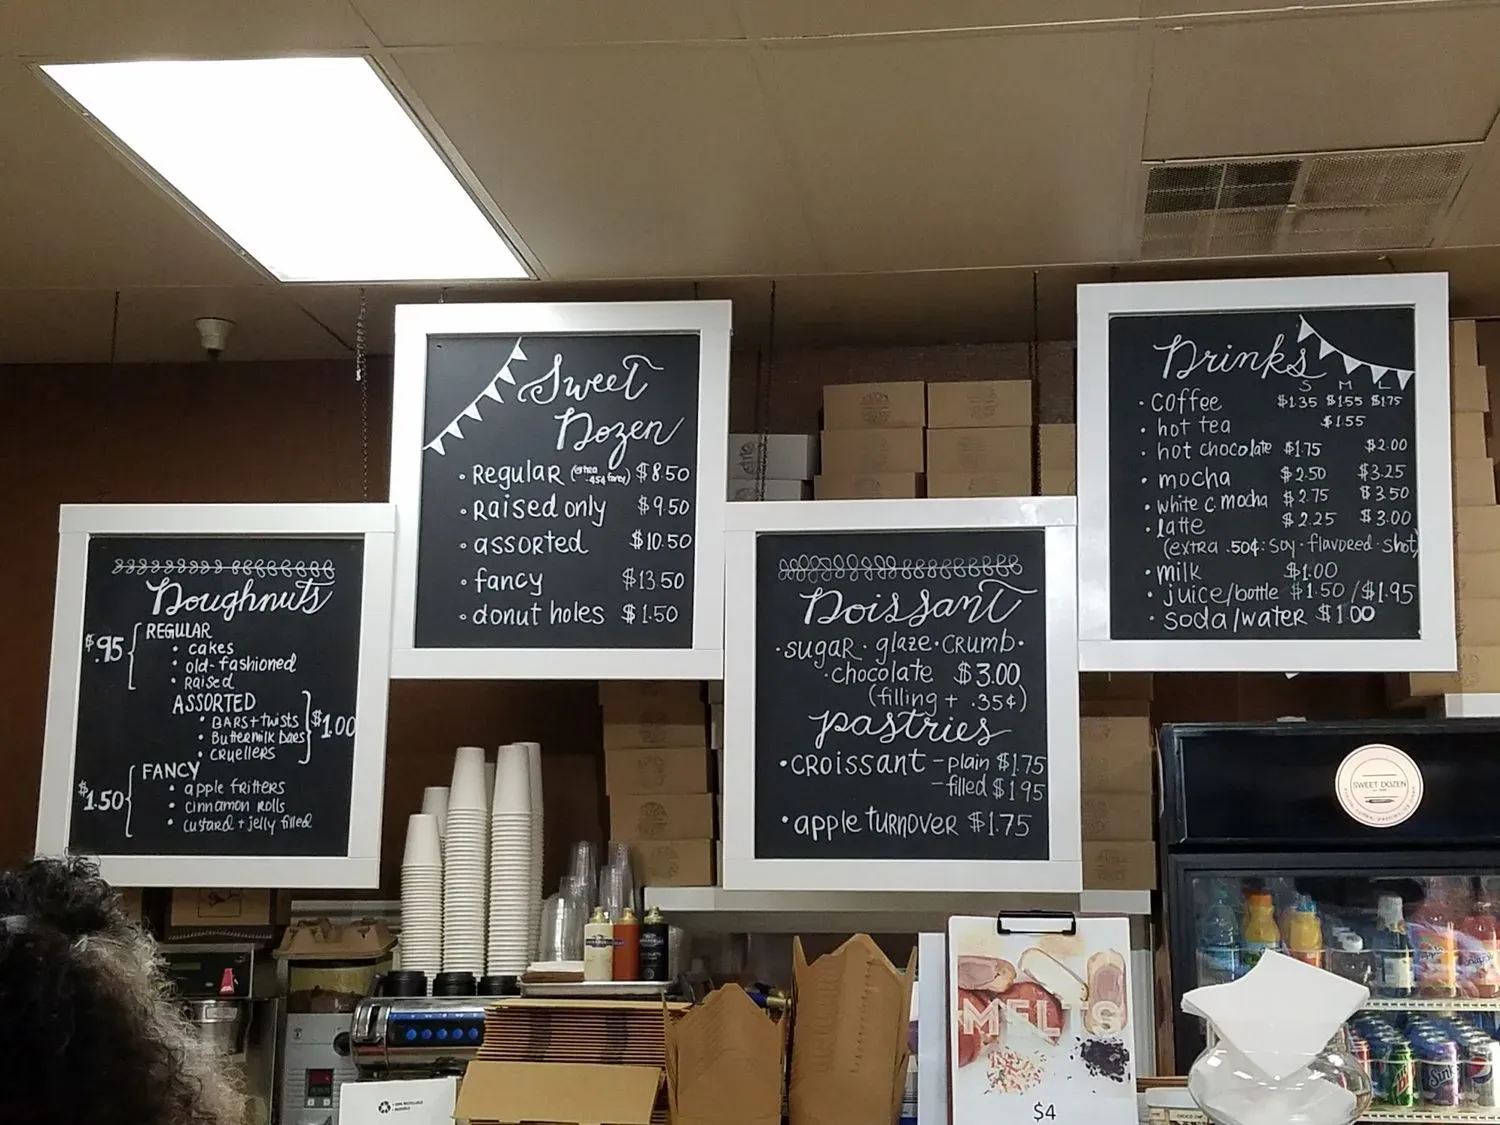 Doughnuts
$.95
REGULAR
• cakes
• old-fashioned
• Raised
ASSORTED
• BARS + twists
• Buttermilk Bars
• CRUELLERS
$1.00
FANCY
$1.50
• apple fritters
• cinnamon Rolls
• custard + jelly filled
Sweet
Dozen
• Regular (extra .45¢ fancy) $8.50
• Raised only $9.50
• assorted $10.50
• fancy $13.50
• donut holes $1.50
Doissant
• sugar • glaze • crumb •
• chocolate $3.00
(filling + .35¢)
Pastries
• CROISSANT - plain $1.75
- filled $1.95
• apple turnover $1.75
Drinks
S M L
• coffee $1.35 $1.55 $1.75
• hot tea $1.55
• hot chocolate $1.75 $2.00
• mocha $2.50 $3.25
• white c mocha $2.75 $3.50
• latte $2.25 $3.00
(extra .50¢: soy • flavored • shot)
• milk $1.00
• juice/bottle $1.50 / $1.95
• soda/water $1.00
SWEET DOZEN
MELTS
$4